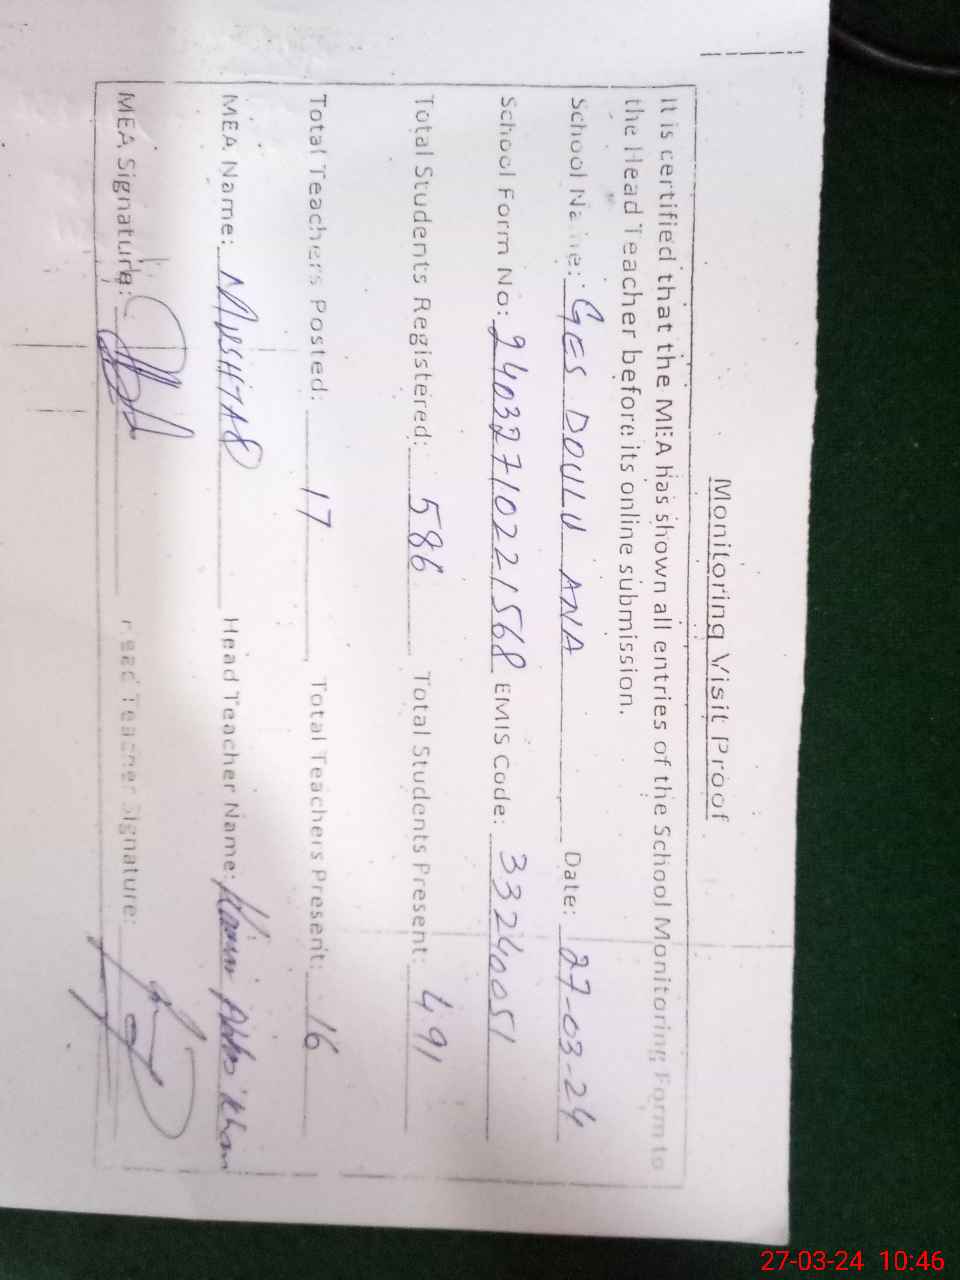 Monitoring Visit Proof
It is certified that the MEA has shown all entries of the School Monitoring Form to
the Head Teacher before its online submission.
School Name: GES DOULU ANA Date: 27-03-24
School Form No: 24032710221568 EMIS Code: 33240051
Total Students Registered: 586 Total Students Present: 491
Total Teachers Posted: 17, Total Teachers Present: 16
MEA Name: MUSHTAQ Head Teacher Name: Khan
MEA Signature: Head Teacher Signature:
27-03-24 10:46